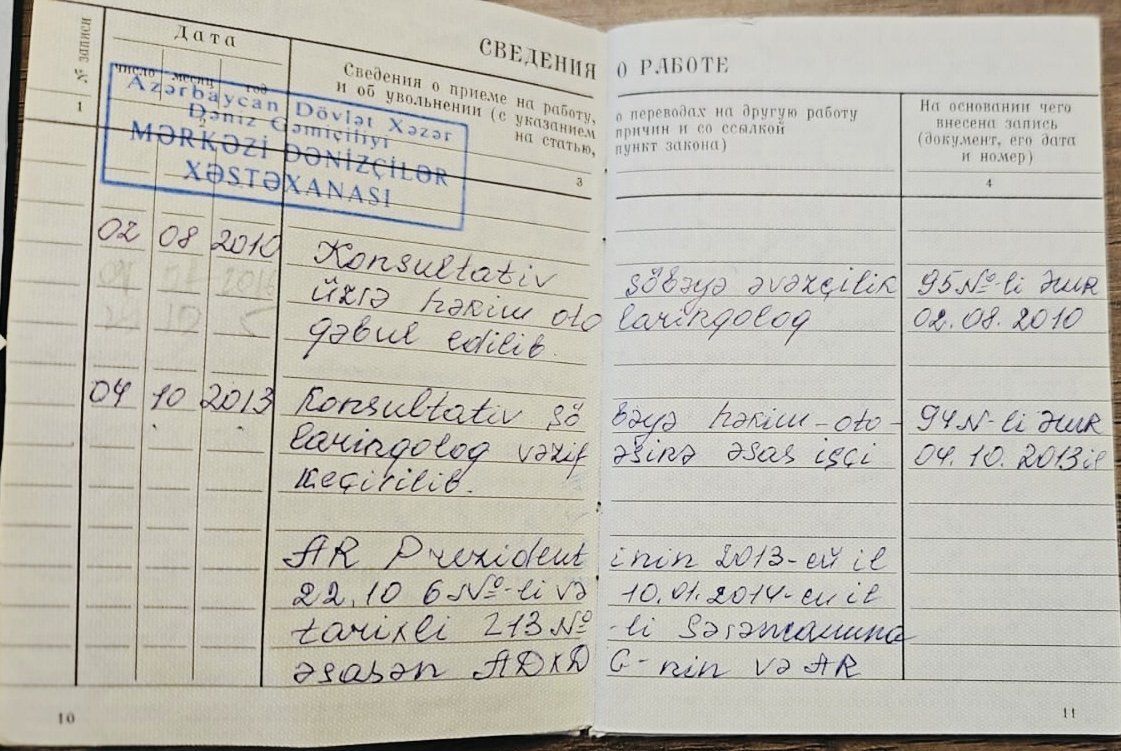 СВЕДЕНИЯ О РАБОТЕ
№ записи
Дата
число месяц год
Сведения о приеме на работу, о переводах на другую работу
и об увольнении (с указанием причин и со ссылкой
на статью, пункт закона)
На основании чего
внесена запись
(документ, его дата
и номер)
1 2 3 4
Azərbaycan Dövlət Xəzər
Dəniz Gəmiçiliyi
MƏRKƏZİ DƏNİZÇİLƏR
XƏSTƏXANASI
02 08 2010 Konsultativ şöbəyə əvəzçilik 95 №-li Əmr
üzrə həkim otolaringolog 02.08.2010
qəbul edilib.
04 10 2013 Konsultativ şöbəyə həkim-oto- 94 N-li Əmr
laringolog vəzifəsinə əsas işçi 04.10.2013 il
keçirilib.
AR Prezidentinin 2013-cü il
22.10 6 №-li və 10.01.2014-cü il
tarixli 213 №-li Sərəncamına
əsasən ADXDG-nin və AR
10
11